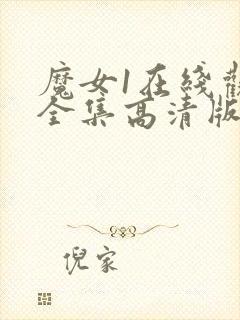 魔女1在线
全集高清版
倪家